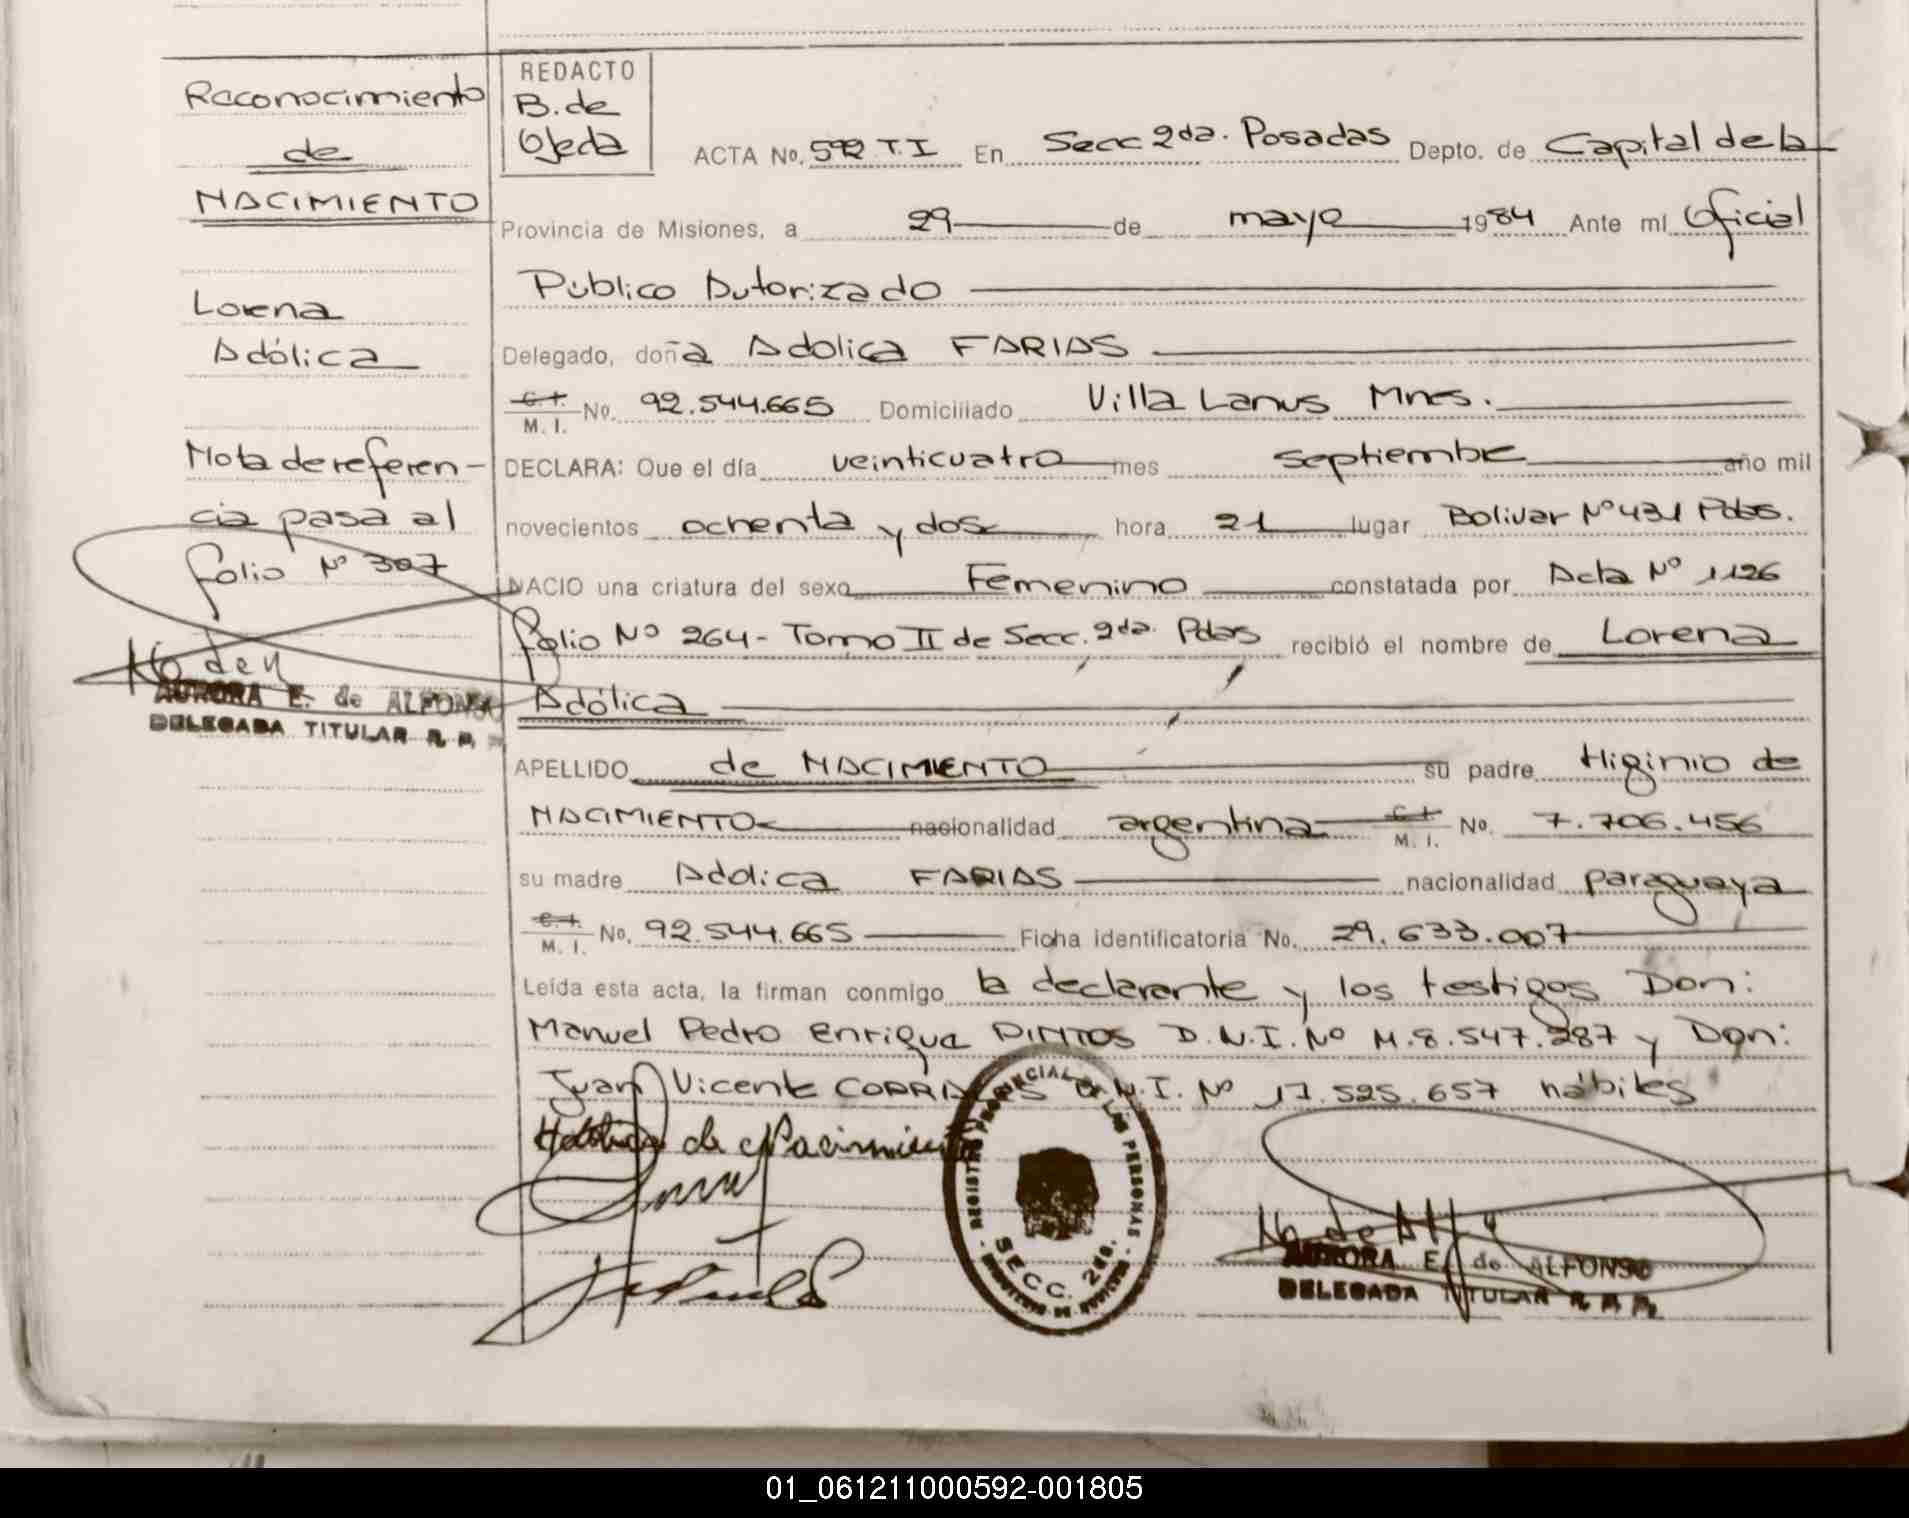 Reconocimiento
de
NACIMIENTO
Lorena
Adólica
Nota de referen-
cia pasa al
folio Nº 307
AURORA E. de ALFONSO
DELEGADA TITULAR R. P.
REDACTO
B. de
Ojeda
ACTA No. 592 T. I En Secc 2da. Posadas Depto. de Capital de la
Provincia de Misiones, a 29 de mayo 1984 Ante mí Oficial
Público Autorizado
Delegado, doña Adolica FARIAS
C. I. M. I. No. 92.544.665 Domiciliado Villa Lanus Mnes.
DECLARA: Que el día veinticuatro mes septiembre año mil
novecientos ochenta y dos hora 21 lugar Bolivar Nº 431 Pdas.
NACIO una criatura del sexo Femenino constatada por Acta Nº 1126
folio Nº 264 - Tomo II de Secc. 2da. Pdas recibió el nombre de Lorena
Adólica
APELLIDO de NACIMIENTO su padre Higinio de
NACIMIENTO nacionalidad argentina C. I. M. I. No. 7.706.456
su madre Adolica FARIAS nacionalidad paraguaya
C. I. M. I. No. 92.544.665 Ficha identificatoria No. 29.633.007
Leída esta acta, la firman conmigo la declarante y los testigos Don:
Manuel Pedro Enrique PINTOS D.N.I. Nº M.8.547.287 y Don:
Juan Vicente CORRALES D.N.I. Nº 17.525.657 hábiles
de Nacimiento
REGISTRO PROVINCIAL DE LAS PERSONAS
SECC. 2da.
AURORA E. de ALFONSO
DELEGADA TITULAR R. P.
01_061211000592-001805